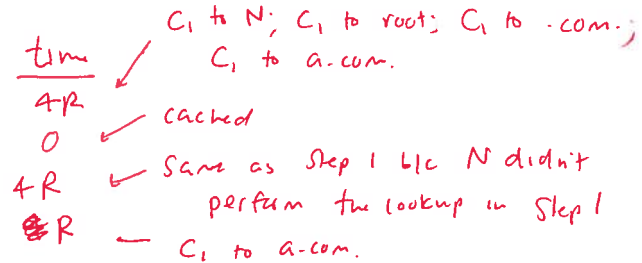 C1 to N; C1 to root; C1 to .com.;
time
C1 to a.com.
4R
cached
0
Same as Step 1 b/c N didn't
4R
perform the lookup in Step 1
R
C1 to a.com.